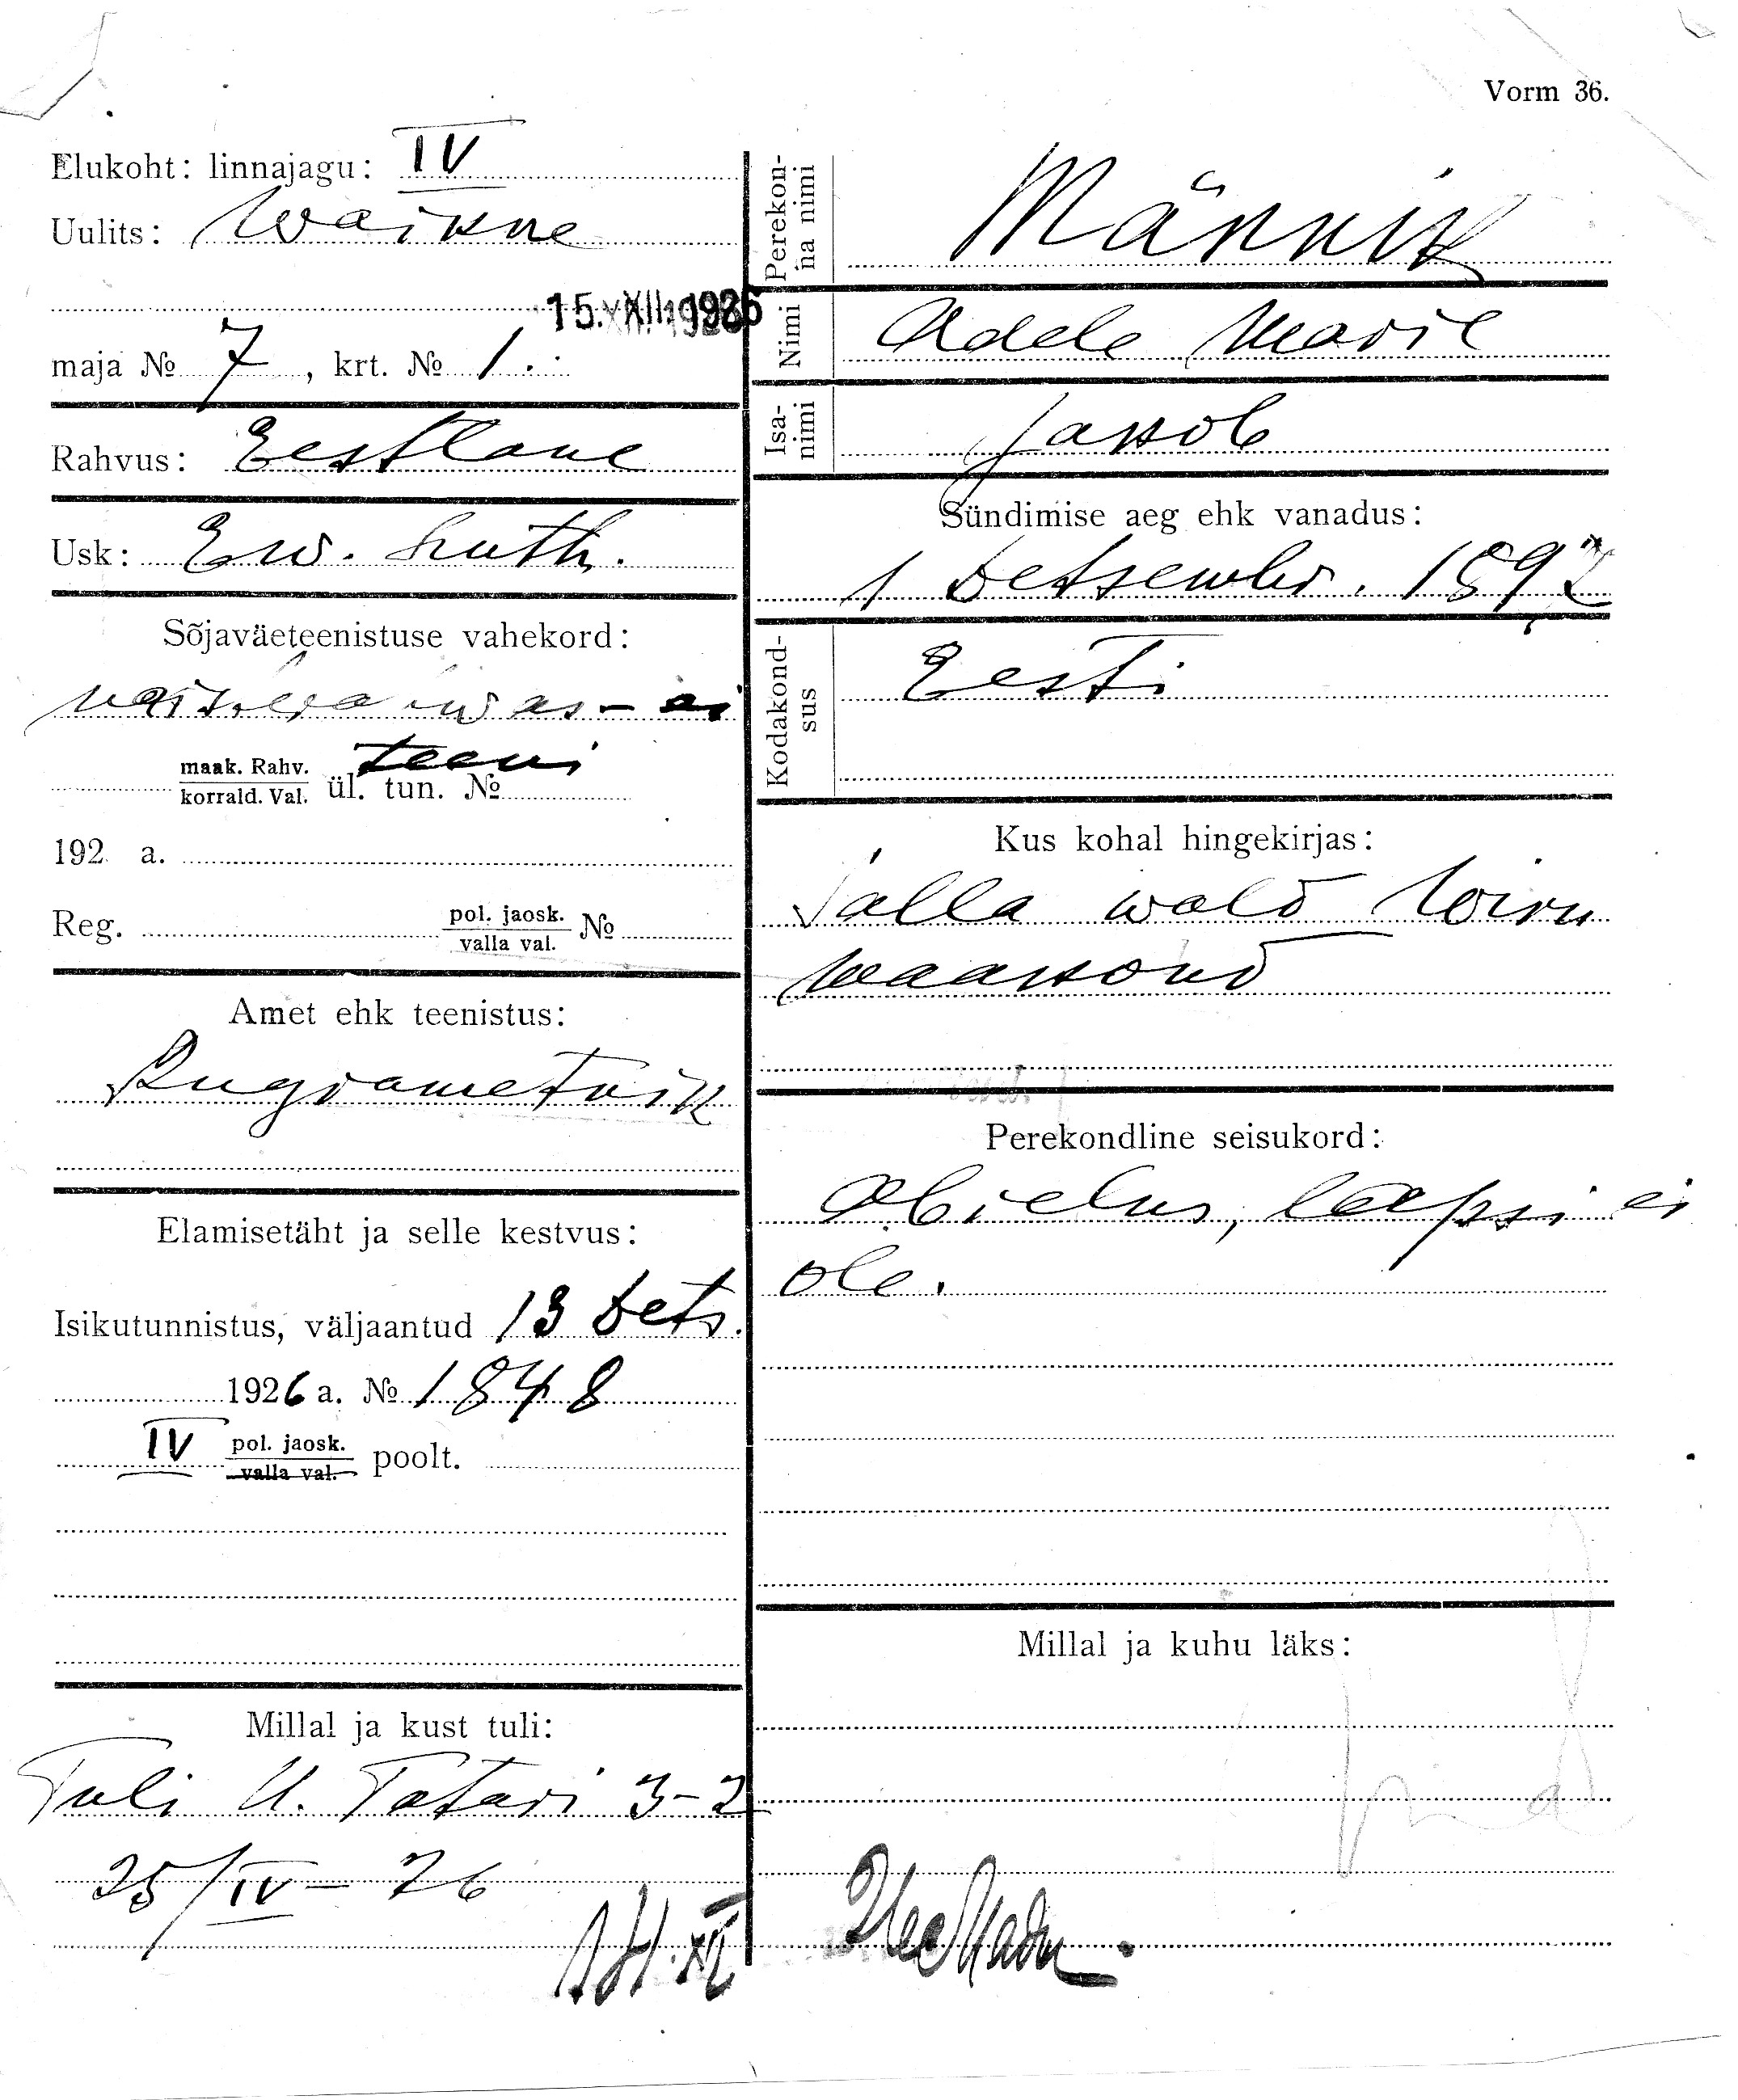 Vorm 36.
Elukoht: linnajagu: IV
Uulits: Waikne
15. XII. 1926
maja № 7, krt. № 1.
Rahvus: Eestlane
Usk: Ew. Luth.
Sõjaväeteenistuse vahekord:
ei
teeni
maak. Rahv.
korrald. Val. ül. tun. №
192 a.
Reg. pol. jaosk.
valla val. №
Amet ehk teenistus:
Riigiametnik
Elamisetäht ja selle kestvus:
Isikutunnistus, väljaantud 13 Dets.
1926 a. № 1848
IV pol. jaosk.
valla val. poolt.
Millal ja kust tuli:
Tuli U. Tatari 3-2
25/IV - 26
Perekon-
na nimi
Männik
Nimi
Adele Marie
Isa-
nimi
Jakob
Sündimise aeg ehk vanadus:
1 Detsembr. 1892
Kodakond-
sus
Eesti
Kus kohal hingekirjas:
Salla wald Wiru
maakond
Perekondline seisukord:
Abielus, lapsi ei
ole.
Millal ja kuhu läks: